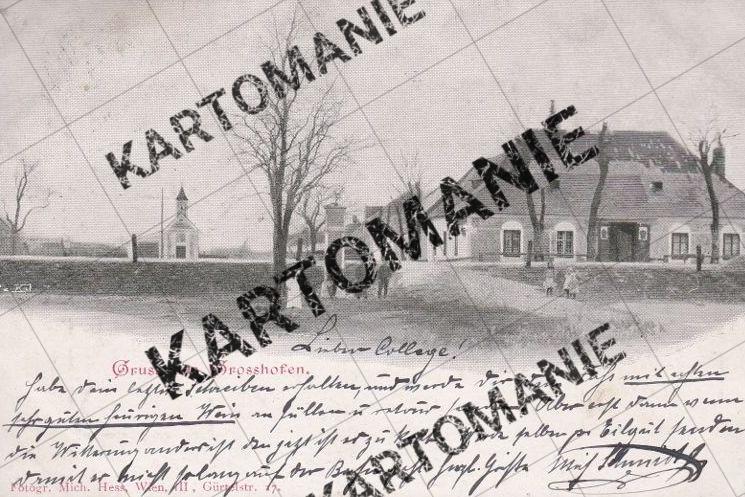 KARTOMANIE
KARTOMANIE
KARTOMANIE
KARTOMANIE
KARTOMANIE
Gruss Grosshofen.
Lieber College!
Habe dein letztes Schreiben erhalten, und werde dir das mit echten
sehr guten heurigen Wein an füllen u retour Aber erst dann wenn
die Witterung anders ist den jetzt ist er zu selben pr Eilgut senden
damit er nicht so lang auf der Bahn Grüße
Fotogr. Mich. Hess, Wien, III, Gürtelstr. 17.